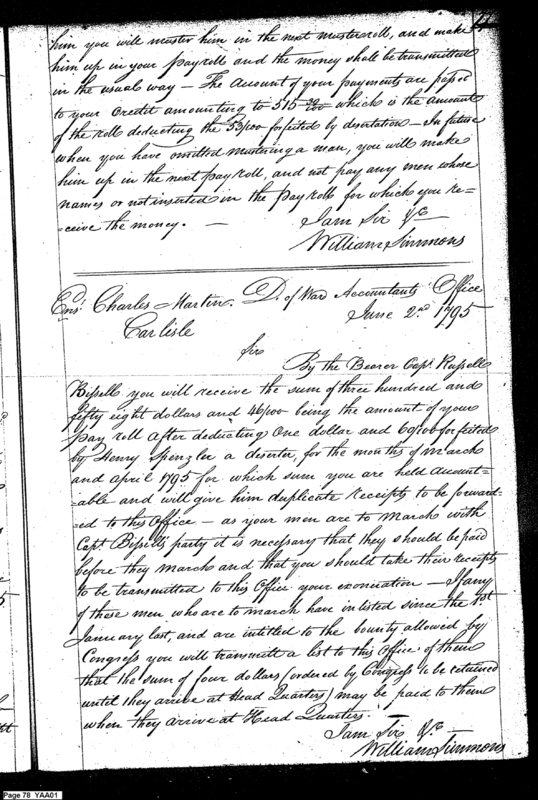 him you will muster him in the next muster roll, and make
him up in your pay roll and the money shall be transmitted
in the usual way — The amount of your payments are passed
to your credit amounting to 515 39/100 which is the amount
of the roll deducting the 53/100 forfeited by desertation — In future
when you have omitted mustering a man, you will make
him up in the next pay roll, and not pay any men whose
names or not inserted in the pay roll for which you re-
-ceive the money. —
I am Sir &c
William Simmons
Ensd. Charles Martin. D. of War Accountants Office
Carlisle June 2nd 1795
Sir
By the Bearer Capt. Russell
Bissell you will receive the sum of three hundred and
fifty eight dollars and 46/100 being the amount of your
pay roll after deducting One dollar and 60/100 forfeited
by Henry Spenzler a deserter, for the months of March
and april 1795 for which sum you are held account-
-able and will give him duplicate receipts to be forward-
-ed to this Office — as your men are to March with
Capt. Bissell's party it is necessary that they should be paid
before they march and that you should take their receipts
to be transmitted to this Office your exoniration — If any
of these men who are to march have inlisted since the 1st
January last, and are intitled to the bounty allowed by
Congress you will transmit a list to this Office of them
that the sum of four dollars (ordered by Congress to be retained
until they arrive at Head Quarters) may be paid to them
when they arrive at Head Quarters. —
I am Sir &c
William Simmons
Page 78 YAA01